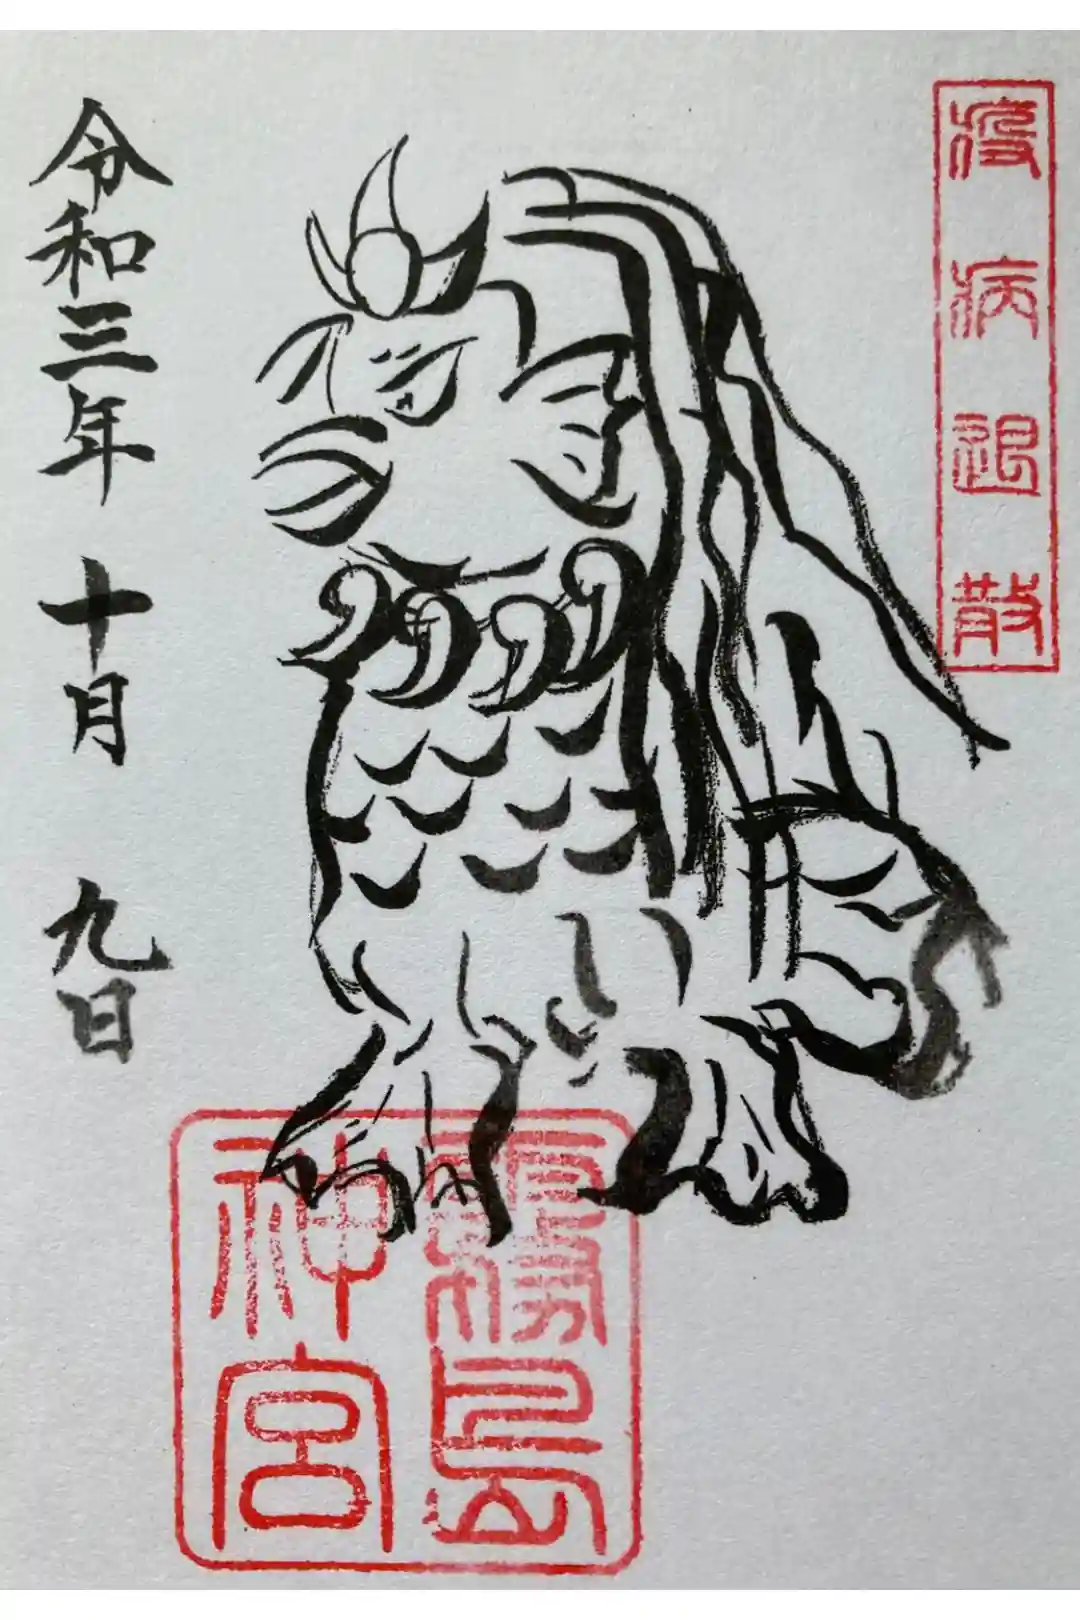 疫病退散
霧島
神宮
令和三年 十月 九日